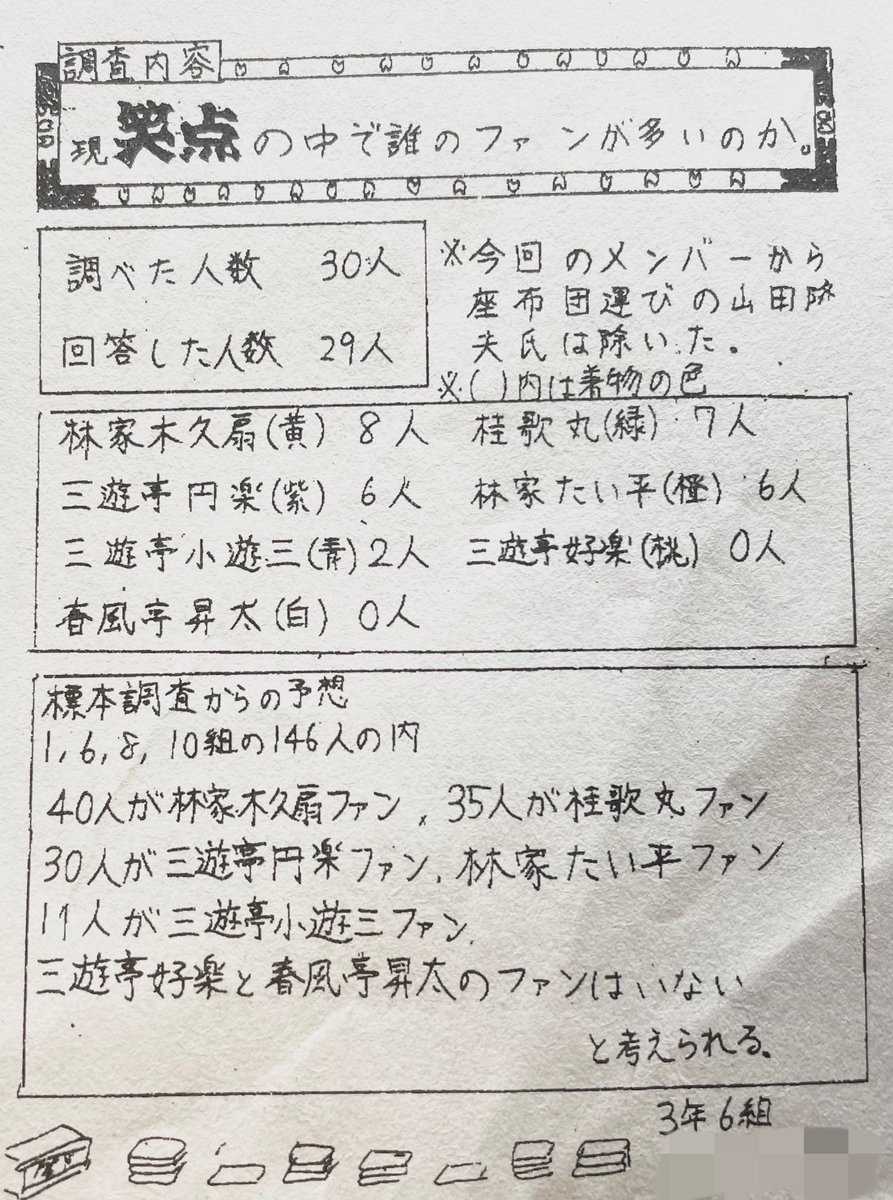 調査内容
現笑点の中で誰のファンが多いのか。
調べた人数 30人
回答した人数 29人
※今回のメンバーから
座布団運びの山田隆
夫氏は除いた。
※( )内は着物の色
林家木久扇(黄) 8人 桂歌丸(緑) 7人
三遊亭円楽(紫) 6人 林家たい平(橙) 6人
三遊亭小遊三(青) 2人 三遊亭好楽(桃) 0人
春風亭昇太(白) 0人
標本調査からの予想
1, 6, 8, 10組の146人の内
40人が林家木久扇ファン、35人が桂歌丸ファン
30人が三遊亭円楽ファン、林家たい平ファン
11人が三遊亭小遊三ファン、
三遊亭好楽と春風亭昇太のファンはいない
と考えられる。
3年6組